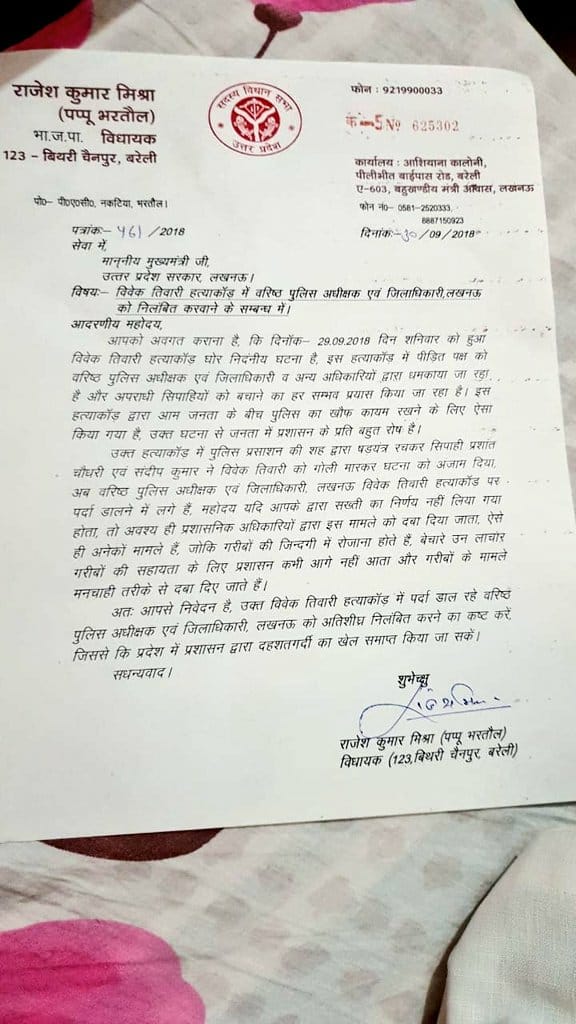 राजेश कुमार मिश्रा
(पप्पू भरतौल)
भा.ज.पा. विधायक
123 – बिथरी चैनपुर, बरेली
पो०- पी०ए०सी०, नकटिया, भरतौल।
सदस्य विधान सभा
उत्तर प्रदेश
फोन : 9219900033
क-5 № 625302
कार्यालय : आशियाना कालोनी,
पीलीभीत बाईपास रोड, बरेली
ए-603, बहुखण्डीय मंत्री आवास, लखनऊ
फोन नं०- 0581-2520333,
8887150923
पत्रांक:- 461/2018
दिनांक:-30/09/2018
सेवा में,
माननीय मुख्यमंत्री जी,
उत्तर प्रदेश सरकार, लखनऊ।
विषय:- विवेक तिवारी हत्याकॉड में वरिष्ठ पुलिस अधीक्षक एवं जिलाधिकारी,लखनऊ
को निलंबित करवाने के सम्बन्ध में।
आदरणीय महोदय,
आपको अवगत कराना है, कि दिनॉक- 29.09.2018 दिन शनिवार को हुआ
विवेक तिवारी हत्याकॉड घोर निदंनीय घटना है, इस हत्याकॉड में पीडित पक्ष को
वरिष्ठ पुलिस अधीक्षक एवं जिलाधिकारी व अन्य अधिकारियों द्वारा धमकाया जा रहा
है और अपराधी सिपाहियों को बचाने का हर सम्भव प्रयास किया जा रहा है। इस
हत्याकॉड द्वारा आम जनता के बीच पुलिस का खौफ कायम रखने के लिए ऐसा
किया गया है, उक्त घटना से जनता में प्रशासन के प्रति बहुत रोष है।
उक्त हत्याकॉड में पुलिस प्रसाशन की शह द्वारा षडयंत्र रचकर सिपाही प्रशांत
चौधरी एवं संदीप कुमार ने विवेक तिवारी को गोली मारकर घटना को अंजाम दिया,
अब वरिष्ठ पुलिस अधीक्षक एवं जिलाधिकारी, लखनऊ विवेक तिवारी हत्याकॉड पर
पर्दा डालने में लगे हैं, महोदय यदि आपके द्वारा सख्ती का निर्णय नहीं लिया गया
होता, तो अवश्य ही प्रशासनिक अधिकारियों द्वारा इस मामले को दबा दिया जाता, ऐसे
ही अनेकों मामले हैं, जोकि गरीबों की जिन्दगी में रोजाना होते हैं, बेचारे उन लाचार
गरीबों की सहायता के लिए प्रशासन कभी आगे नहीं आता और गरीबों के मामले
मनचाही तरीके से दबा दिए जाते हैं।
अतः आपसे निवेदन है, उक्त विवेक तिवारी हत्याकॉड में पर्दा डाल रहे वरिष्ठ
पुलिस अधीक्षक एवं जिलाधिकारी, लखनऊ को अतिशीघ्र निलंबित करने का कष्ट करें,
जिससे कि प्रदेश में प्रशासन द्वारा दहशतगर्दी का खेल समाप्त किया जा सकें।
सधन्यवाद।
शुभेच्छु
राजेश कुमार मिश्रा (पप्पू भरतौल)
विधायक (123,बिथरी चैनपुर, बरेली)